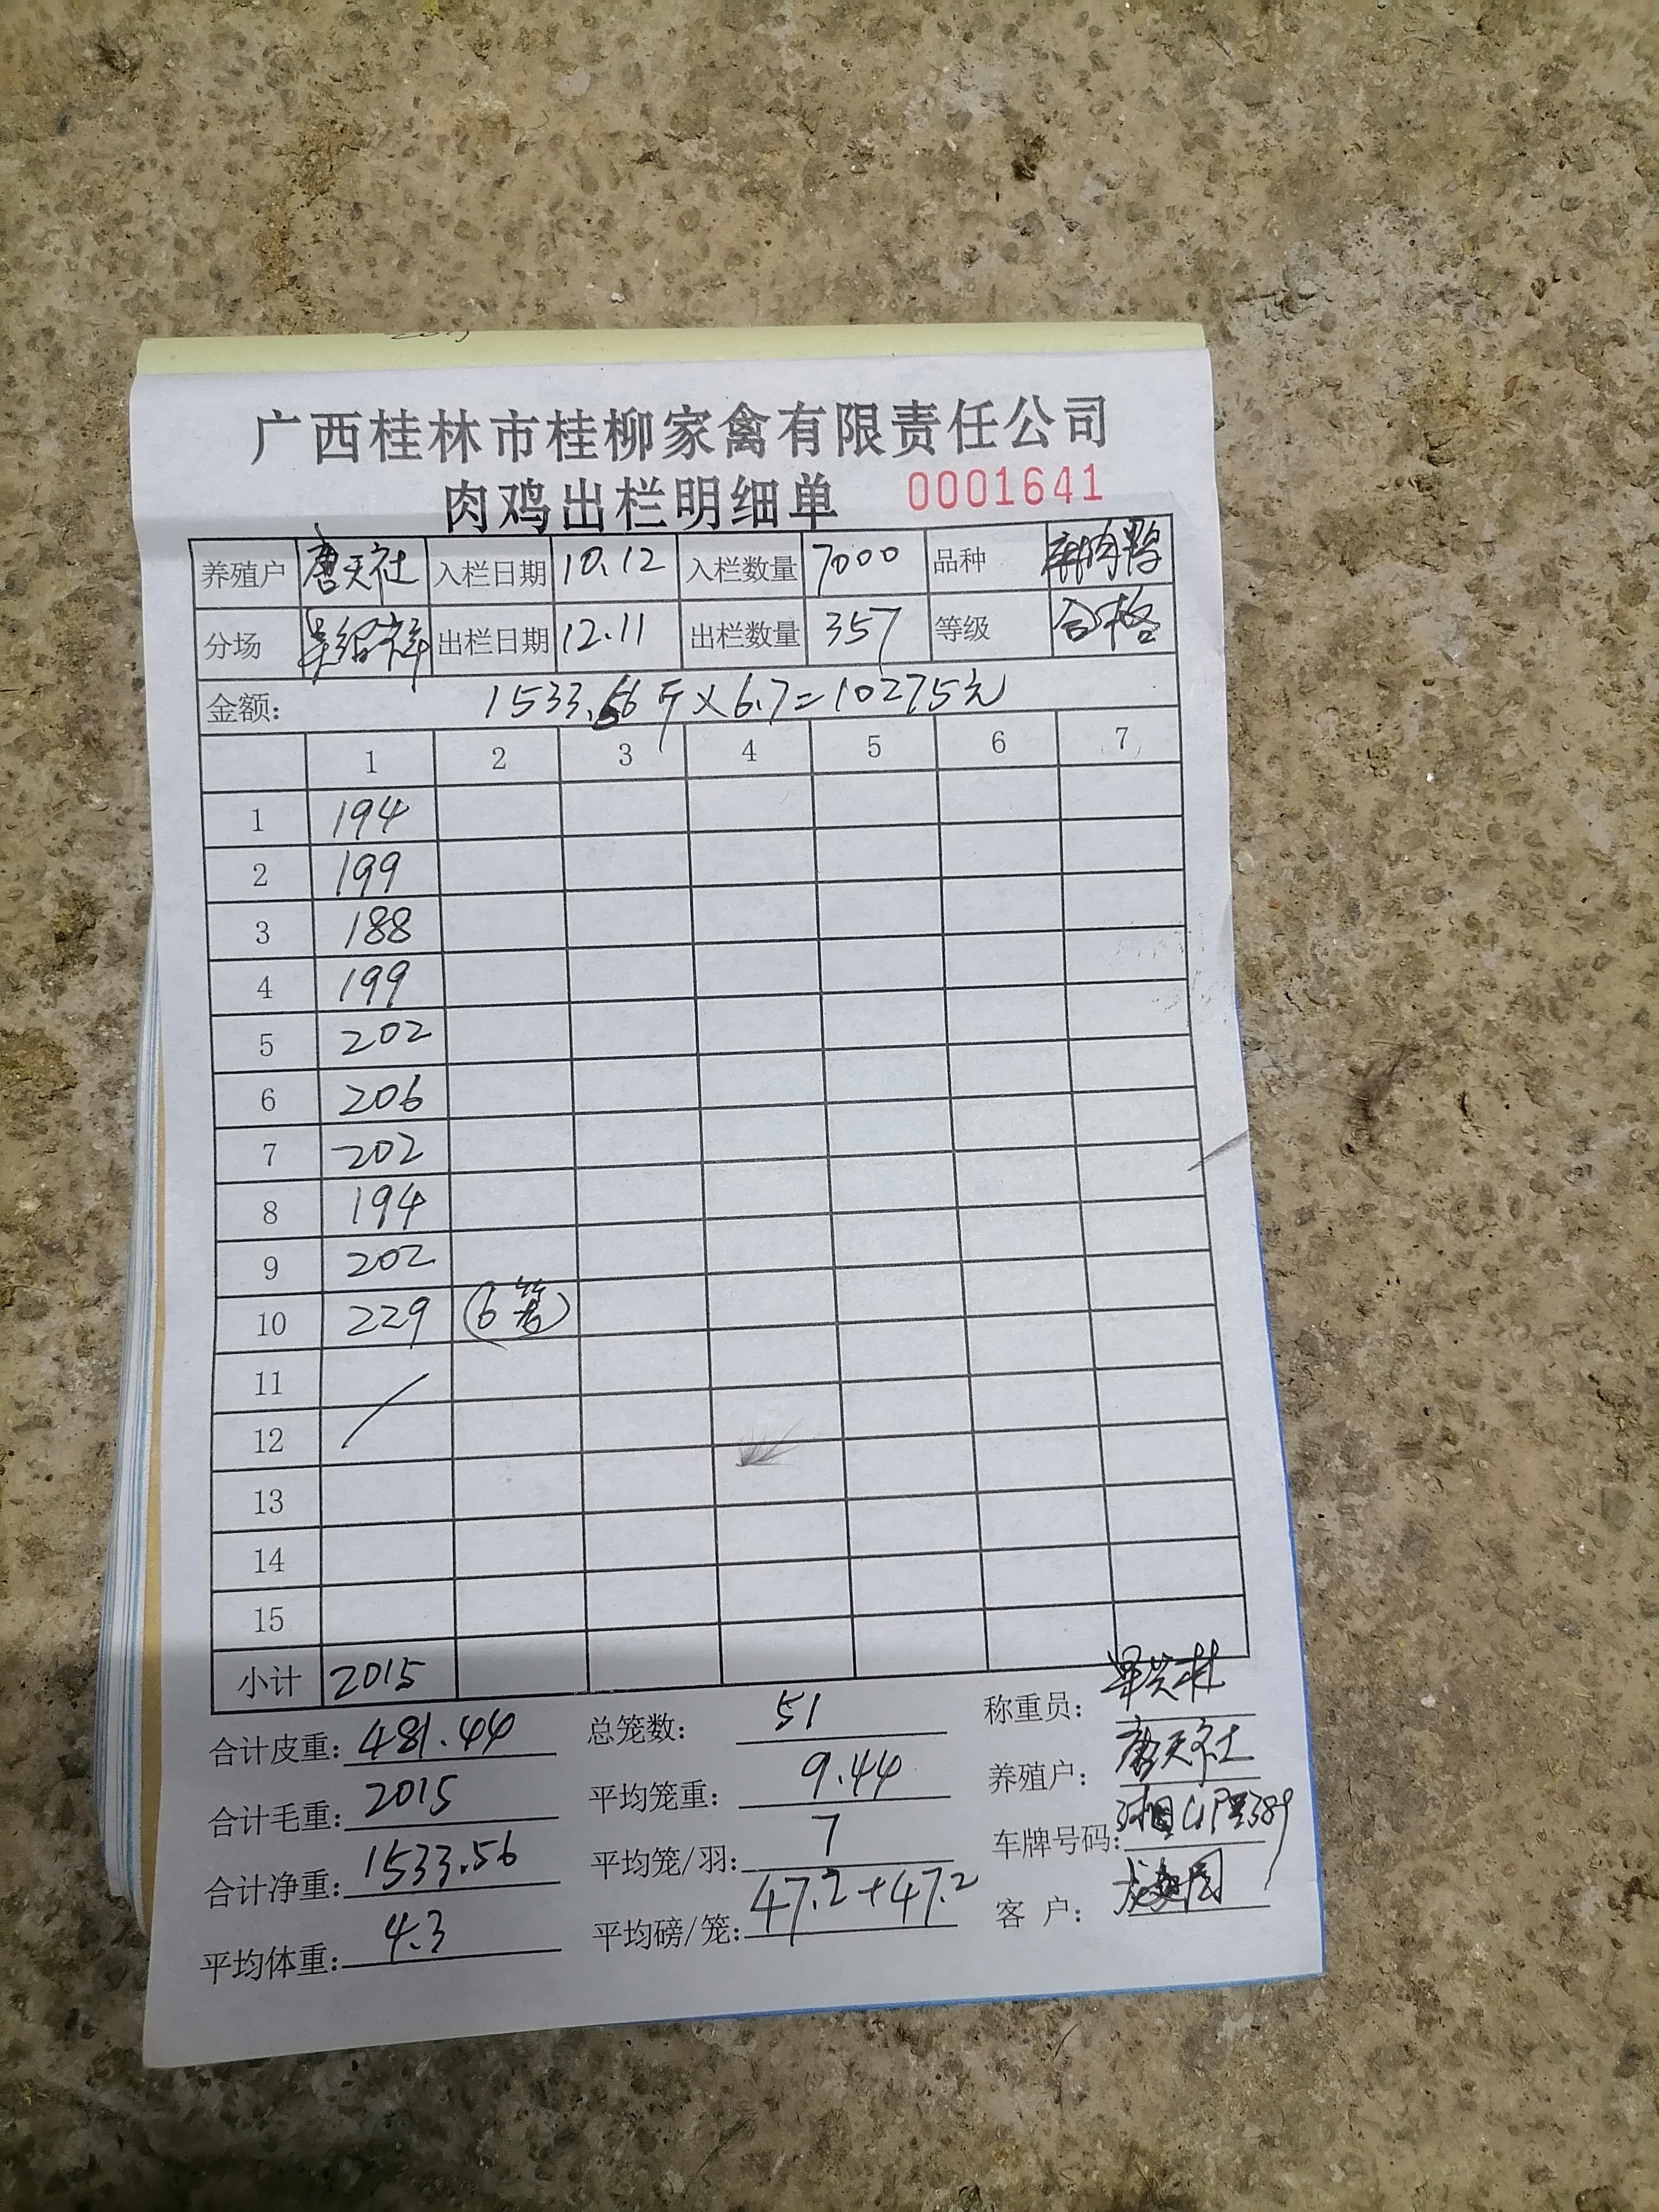 广西桂林市桂柳家禽有限责任公司
肉鸡出栏明细单 0001641
养殖户 唐天社 入栏日期 10.12 入栏数量 7000 品种 麻肉鸭
分场 出栏日期 12.11 出栏数量 357 等级 合格
金额: 1533.56斤×6.7=10275元
1 2 3 4 5 6 7
1 194
2 199
3 188
4 199
5 202
6 206
7 202
8 194
9 202
10 229 (6笼)
11
12
13
14
15
小计 2015
合计皮重: 481.44 总笼数: 51 称重员:
合计毛重: 2015 平均笼重: 9.44 养殖户: 唐天社
合计净重: 1533.56 平均笼/羽: 7 车牌号码:
平均体重: 4.3 平均磅/笼: 47.2+47.2 客 户: